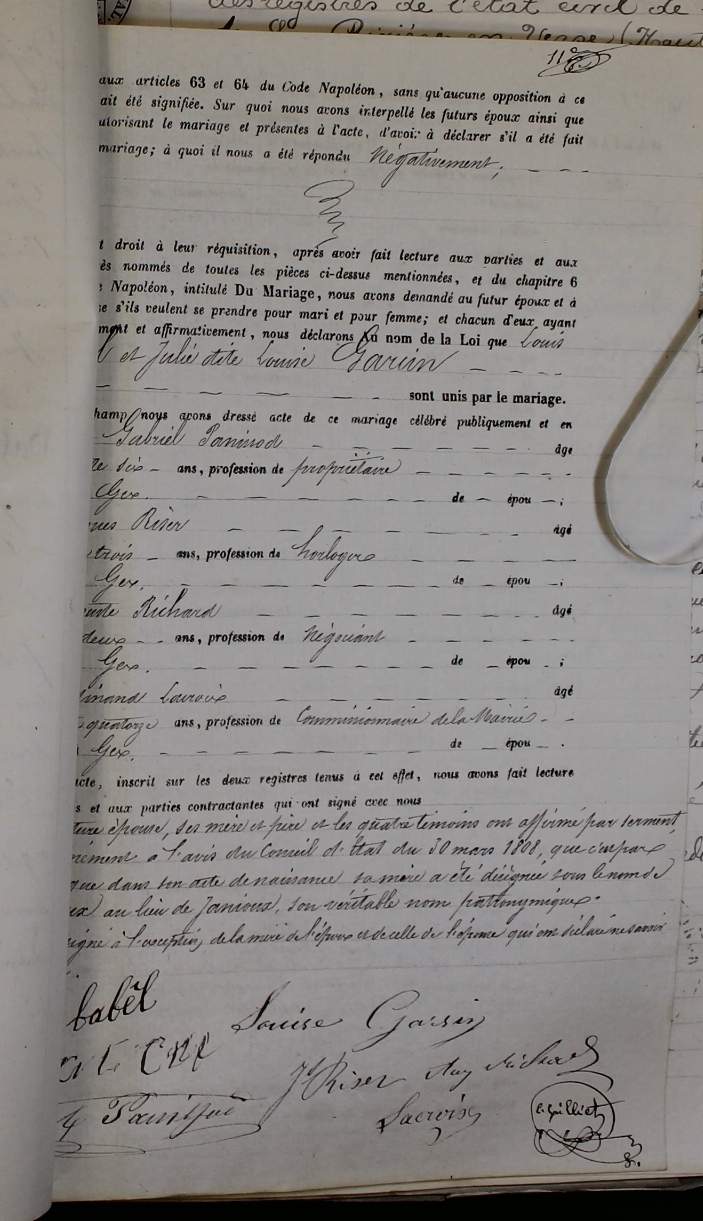 des registres de l'état civil de
aux articles 63 et 64 du Code Napoléon, sans qu'aucune opposition à ce
ait été signifiée. Sur quoi nous avons interpellé les futurs époux ainsi que
utorisant le mariage et présentes à l'acte, d'avoir à déclarer s'il a été fait
mariage; à quoi il nous a été répondu Négativement;
t droit à leur réquisition, après avoir fait lecture aux parties et aux
ès nommés de toutes les pièces ci-dessus mentionnées, et du chapitre 6
e Napoléon, intitulé Du Mariage, nous avons demandé au futur époux et à
se s'ils veulent se prendre pour mari et pour femme; et chacun d'eux ayant
ment et affirmativement, nous déclarons au nom de la Loi que Louis
et Julie dite Louise Garin
sont unis par le mariage.
hamp nous avons dressé acte de ce mariage célébré publiquement et en
Gabriel Panissod
âgé
te six ans, profession de propriétaire
Gex. de épou ;
ues Riser
âgé
trois ans, profession de horloger
Gex. de épou ;
aude Richard âgé
deux ans, profession de négociant
Gex. de épou ;
inand Lacroix âgé
quatorze ans, profession de Commissionnaire de la Mairie
Gex. de épou .
acte, inscrit sur les deux registres tenus à cet effet, nous avons fait lecture
s et aux parties contractantes qui ont signé avec nous
ture épouse, ses mère et frère et les quatre témoins ont affirmé par serment
mément à l'avis du Conseil d'État du 30 mars 1808, que c'est par
que dans son acte de naissance sa mère a été désignée sous le nom de
au lieu de Janioux, son véritable nom patronymique.
signé à l'exception de la mère de l'époux et de celle de l'épouse qui ont déclaré ne savoir
babël
Louise Garin
J Riser
Lacroix